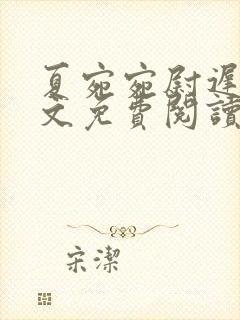 夏宛宛尉遲
文免費閱讀
宋潔